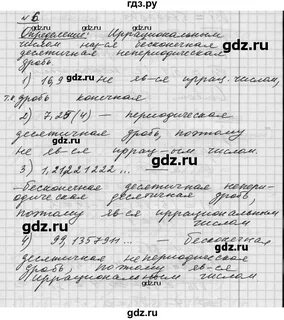 гдз.ру
№6
Определение: Иррациональным
числом наз-ся бесконечная
десятичная непериодическая
дробь.
1) 16,9 не яв-ся иррац. числом,
т.к дробь конечная
2) 7,25(4) – периодическая
десятичная дробь, поэтому
не яв-ся иррац-ым числом.
3) 1,21221222 ...
-бесконечная десятичная непери-
одическая десятичная дробь,
поэтому яв-ся иррациональным
числом
4) 99,1357911... – бесконечная
десятичная непериодическая
дробь, поэтому яв-ся
иррациональным числом
гдз.ру